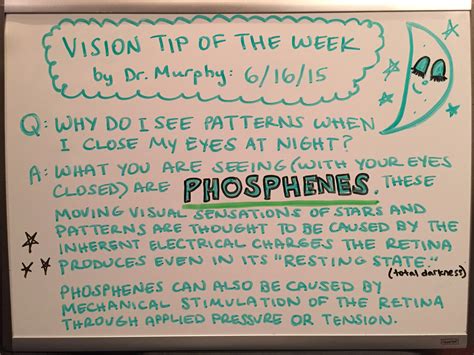 VISION TIP OF THE WEEK
by Dr. Murphy: 6/16/15
Q: WHY DO I SEE PATTERNS WHEN
I CLOSE MY EYES AT NIGHT?
A: WHAT YOU ARE SEEING (WITH YOUR EYES
CLOSED) ARE PHOSPHENES. THESE
MOVING VISUAL SENSATIONS OF STARS AND
PATTERNS ARE THOUGHT TO BE CAUSED BY THE
INHERENT ELECTRICAL CHARGES THE RETINA
PRODUCES EVEN IN ITS "RESTING STATE."
(total darkness)
PHOSPHENES CAN ALSO BE CAUSED BY
MECHANICAL STIMULATION OF THE RETINA
THROUGH APPLIED PRESSURE OR TENSION.